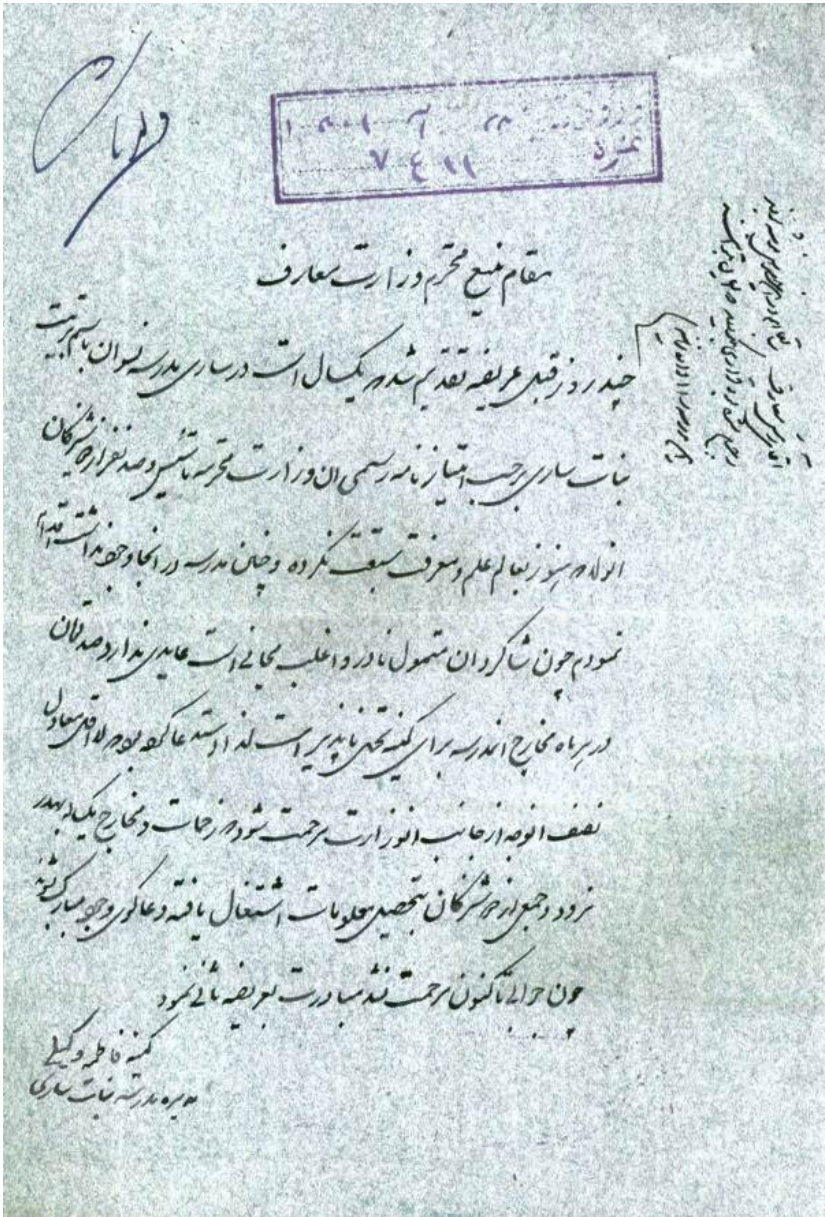 نمره ۷۴۱۱
مقام منیع محترم وزارت معارف
چند روز قبل عریضه تقدیم شد که یکسال است در ساری مدرسه نسوان باسم تربیت
بنات ساری برحسب امتیازنامه رسمی ان وزارت محترمه تاسیس و صد نفر از دوشیزگان
که هنوز بعالم علم و معرفت سبقت نکرده و چنین مدرسه در انجا وجود نداشت اقدام
نمودم چون شاگردان متمول نادر و اغلب مجانی است عایدی ندارد صد تومان
در هر ماه مخارج اینمدرسه برای کمینه تحمل ناپذیر است لذا استدعا کرده بود که لااقل معادل
نصف انوجه از جانب انوزارت مرحمت شود که زحمات و مخارج یکساله بهدر
نرود و جمعی از دوشیزگان بتحصیل معلومات اشتغال یافته دعاگوی وجود مبارک شوند
چون جوابی تاکنون مرحمت نشد مبادرت بعریضه ثانی نمود
کمینه فاطمه وکیلی
مدیره مدرسه بنات ساری